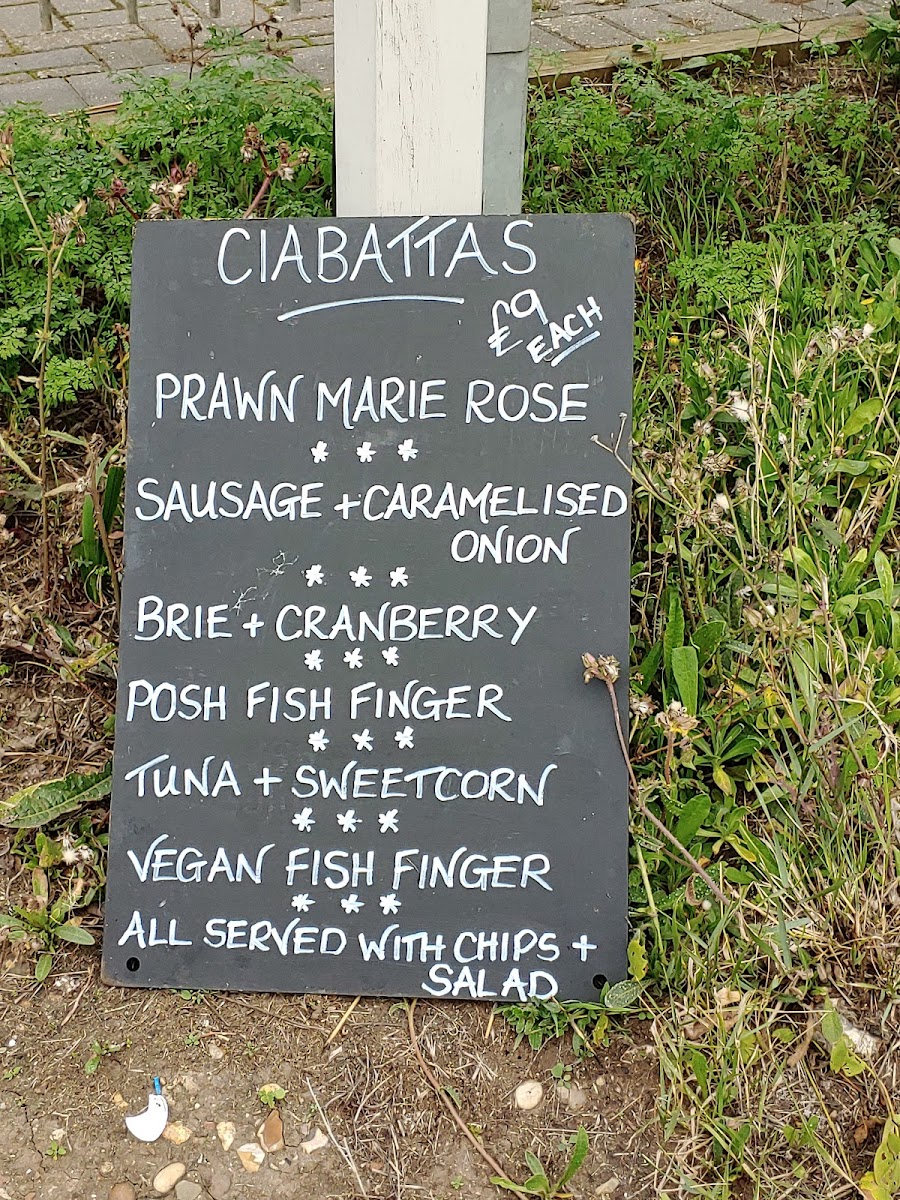 CIABATTAS
£9
EACH
PRAWN MARIE ROSE
* * *
SAUSAGE + CARAMELISED
ONION
* * *
BRIE + CRANBERRY
* * *
POSH FISH FINGER
* * *
TUNA + SWEETCORN
* * *
VEGAN FISH FINGER
* * *
ALL SERVED WITH CHIPS +
SALAD